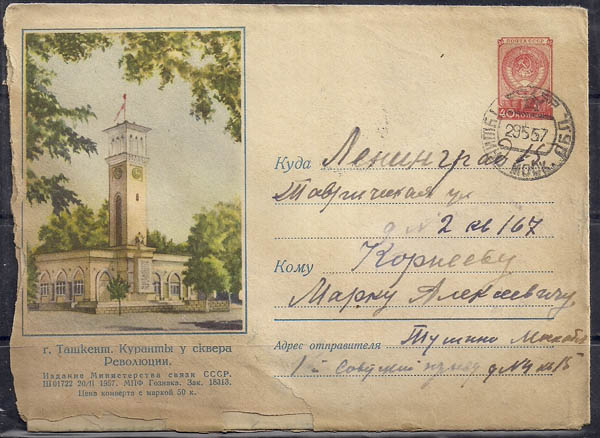 ПОЧТА СССР
40 КОП
29557
МОСК.
Куда Ленинград
Таврическая ул
д 2 кв 167
Корнееву
Кому
Марку Алексеевичу
Адрес отправителя Тушино Москов
1й Советский д №4 кв 15
г. Ташкент. Куранты у сквера
Революции.
Издание Министерства связи СССР.
Ш 01722 20/II 1957. МПФ Гознака. Зак. 18313.
Цена конверта с маркой 50 к.